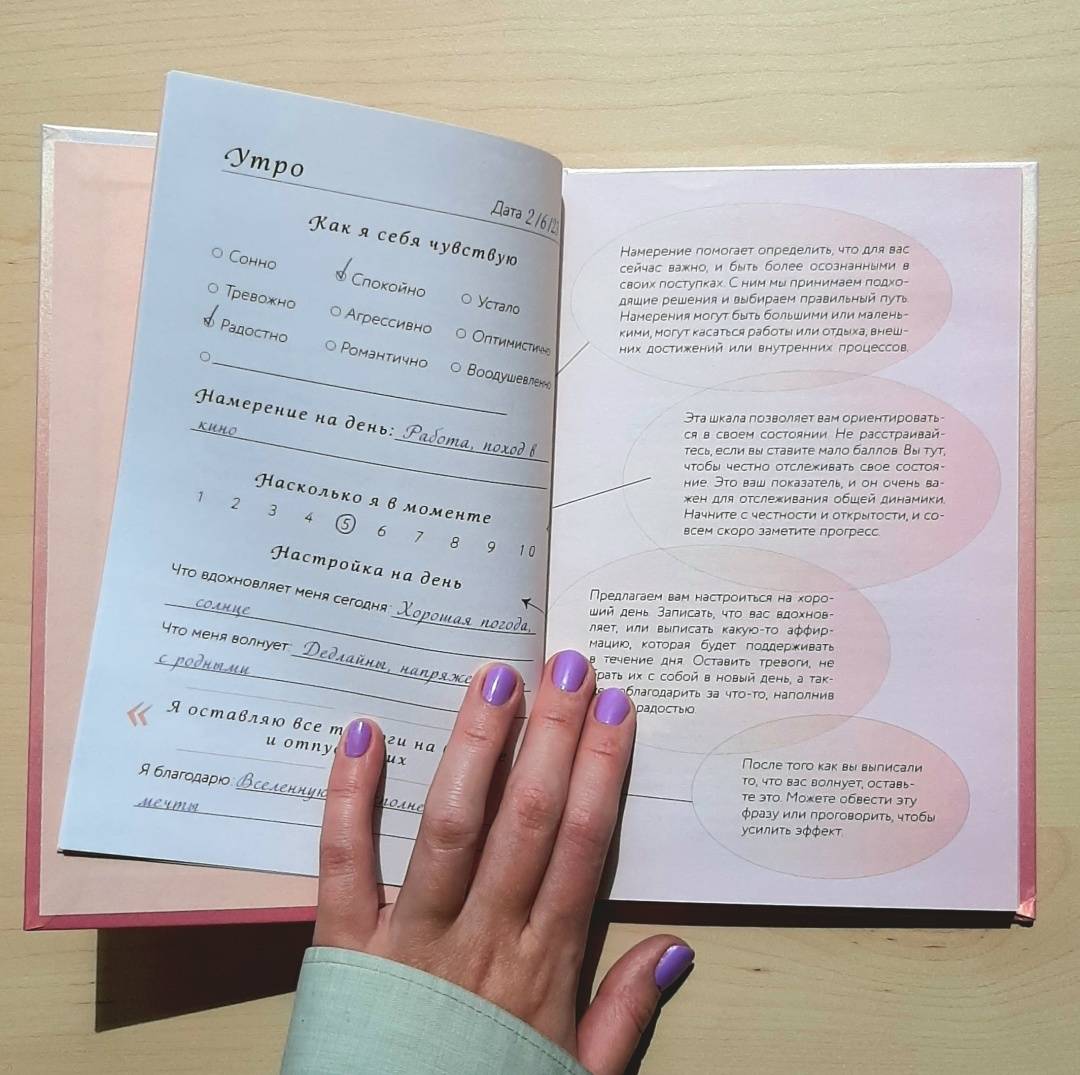 Утро
Дата 2/6/23
Как я себя чувствую
Сонно
Спокойно
Устало
Тревожно
Агрессивно
Оптимистично
Радостно
Романтично
Воодушевленно
Намерение на день: Работа, поход в
кино
Насколько я в моменте
1 2 3 4 5 6 7 8 9 10
Настройка на день
Что вдохновляет меня сегодня: Хорошая погода,
солнце
Что меня волнует: Дедлайны,
с родными
« Я оставляю все на
и
Я благодарю:
мечты
Намерение помогает определить, что для вас
сейчас важно, и быть более осознанными в
своих поступках. С ним мы принимаем подхо-
дящие решения и выбираем правильный путь.
Намерения могут быть большими или малень-
кими, могут касаться работы или отдыха, внеш-
них достижений или внутренних процессов.
Эта шкала позволяет вам ориентировать-
ся в своем состоянии. Не расстраивай-
тесь, если вы ставите мало баллов. Вы тут,
чтобы честно отслеживать свое состоя-
ние. Это ваш показатель, и он очень ва-
жен для отслеживания общей динамики.
Начните с честности и открытости, и со-
всем скоро заметите прогресс.
Предлагаем вам настроиться на хоро-
ший день. Записать, что вас вдохнов-
ляет, или выписать какую-то аффир-
мацию, которая будет поддерживать
в течение дня. Оставить тревоги, не
брать их с собой в новый день, а так-
поблагодарить за что-то, наполнив
радостью.
После того как вы выписали
то, что вас волнует, оставь-
те это. Можете обвести эту
фразу или проговорить, чтобы
усилить эффект.